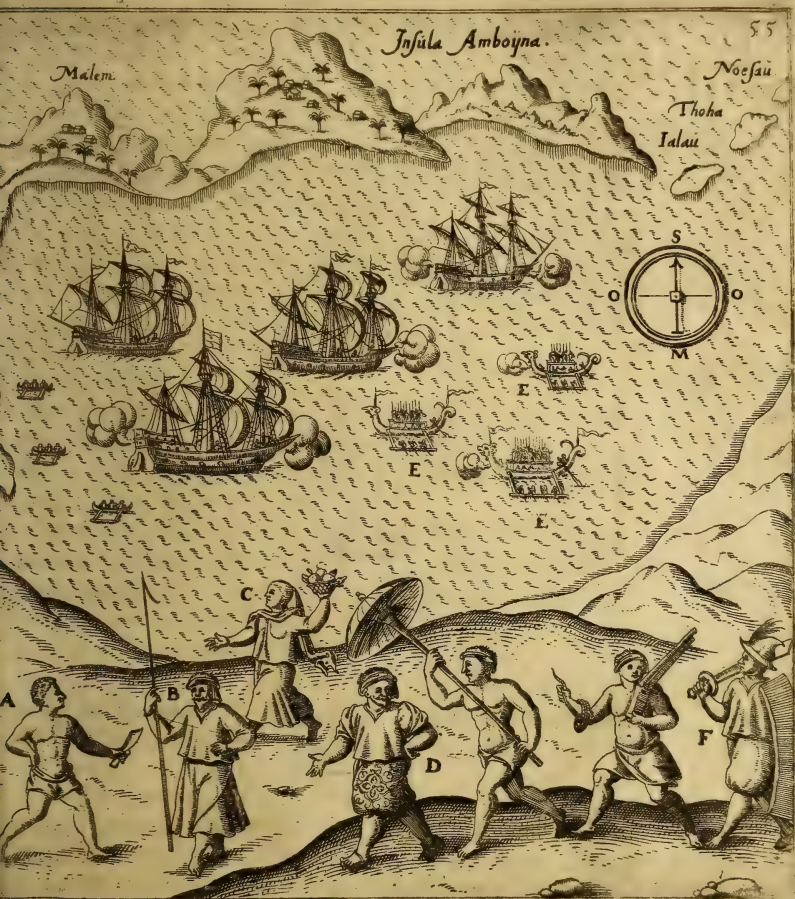 55
Insula Amboyna.
Malem.
Noesau
Thoha
Ialau
S
O
O
M
E
E
E
C
A
B
D
F